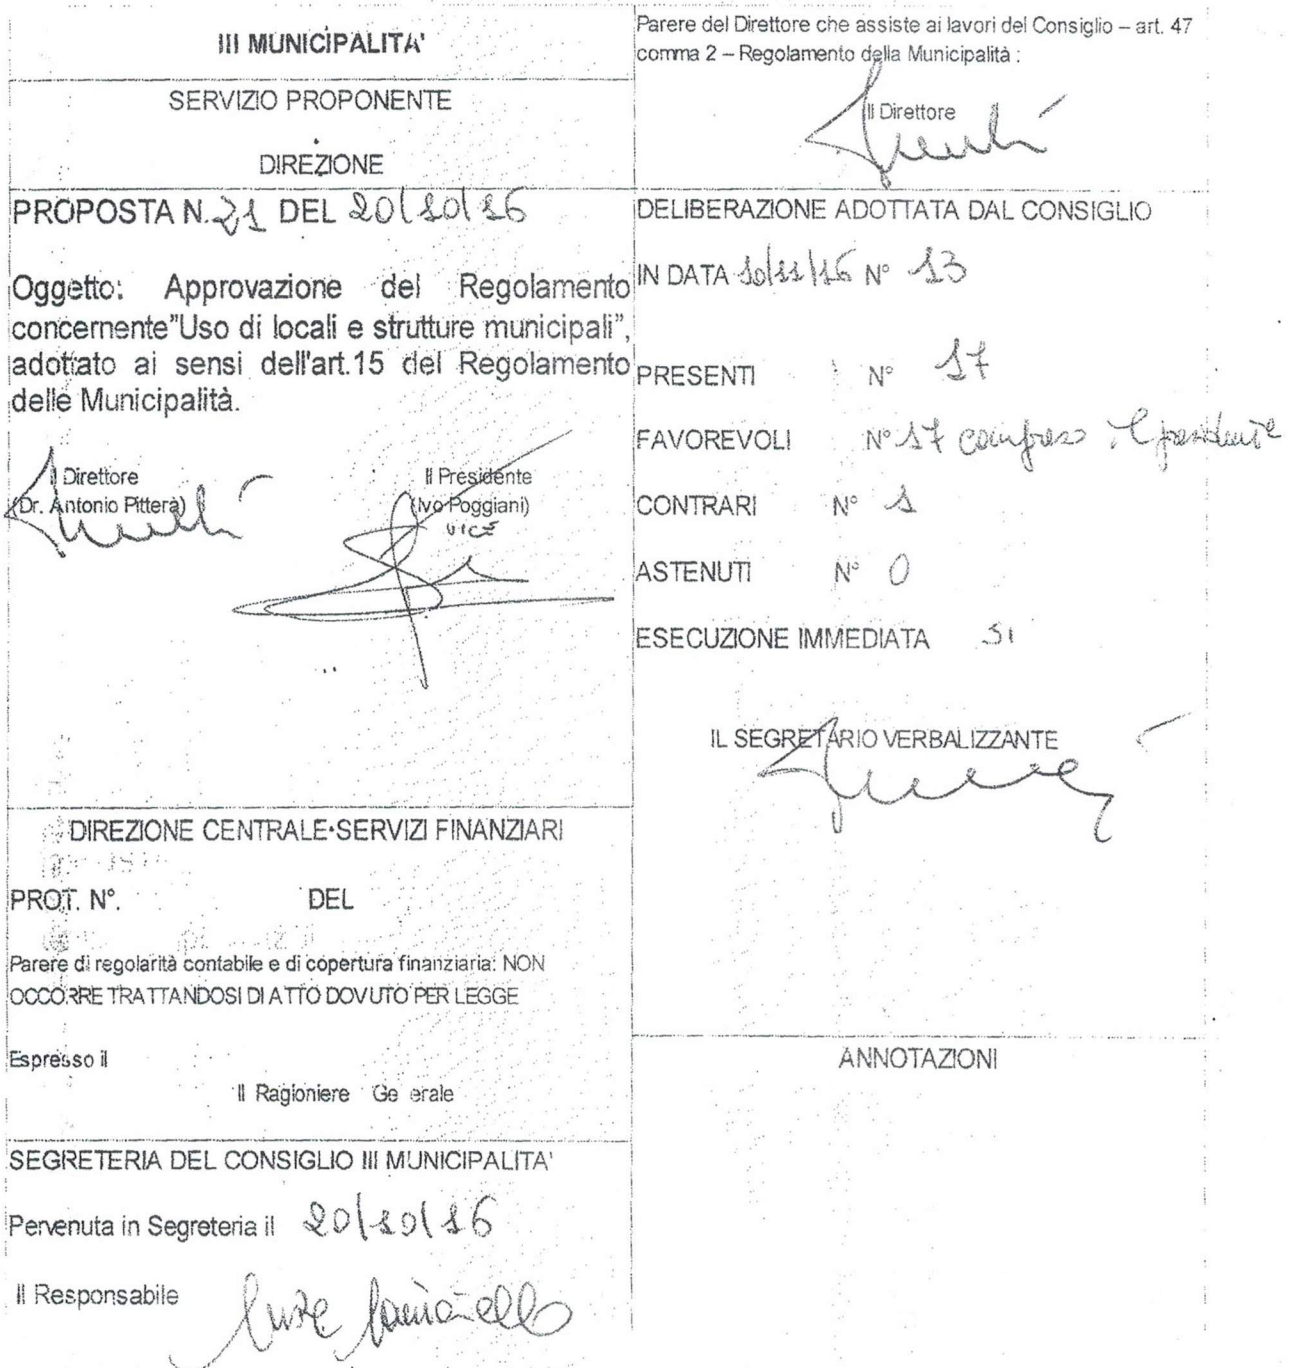 III MUNICIPALITA'
SERVIZIO PROPONENTE
DIREZIONE
PROPOSTA N. 21 DEL 20/10/16
Oggetto: Approvazione del Regolamento
concernente"Uso di locali e strutture municipali",
adottato ai sensi dell'art.15 del Regolamento
delle Municipalità.
Il Direttore
(Dr. Antonio Pitterà)
Il Presidente
(Ivo Poggiani)
VICE
DIREZIONE CENTRALE SERVIZI FINANZIARI
PROT. N°. DEL
Parere di regolarità contabile e di copertura finanziaria: NON
OCCORRE TRATTANDOSI DI ATTO DOVUTO PER LEGGE
Espresso il
Il Ragioniere Ge erale
SEGRETERIA DEL CONSIGLIO III MUNICIPALITA'
Pervenuta in Segreteria il 20/10/16
Il Responsabile
Parere del Direttore che assiste ai lavori del Consiglio – art. 47
comma 2 – Regolamento della Municipalità :
Il Direttore
DELIBERAZIONE ADOTTATA DAL CONSIGLIO
IN DATA 10/11/16 N° 13
PRESENTI N° 17
FAVOREVOLI N° 17 compreso il presidente
CONTRARI N° 1
ASTENUTI N° 0
ESECUZIONE IMMEDIATA SI
IL SEGRETARIO VERBALIZZANTE
ANNOTAZIONI